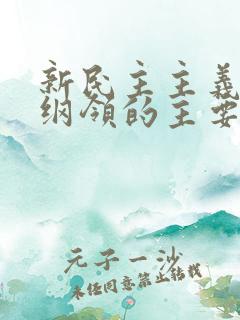 新民主主義
纲领的主要
元子一沙
未经同意禁止转载